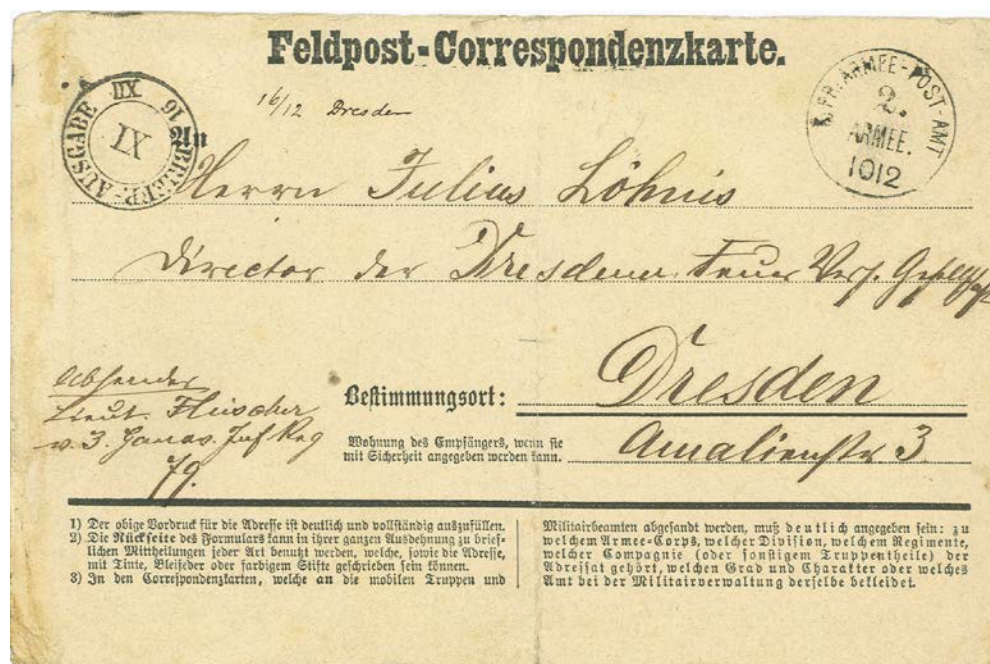 Feldpost-Correspondenzkarte.
16/12 Dresden
BRIEF-AUSGABE 16 XII
IX
K.PR.ARMEE-POST-AMT
2.
ARMEE.
10 12
An
Herrn Julius Löhnis
Director der Dresdener Feuer Vers.
Bestimmungsort: Dresden
Wohnung des Empfängers, wenn sie
mit Sicherheit angegeben werden kann. Amalienstr 3
Absender
Lieut.
v. 3. Hanov. Inf Reg
79.
1) Der obige Vordruck für die Adresse ist deutlich und vollständig auszufüllen.
2) Die Rückseite des Formulars kann in ihrer ganzen Ausdehnung zu brief-
lichen Mittheilungen jeder Art benutzt werden, welche, sowie die Adresse,
mit Tinte, Bleifeder oder farbigem Stifte geschrieben sein können.
3) In den Correspondenzkarten, welche an die mobilen Truppen und
Militairbeamten abgesandt werden, muß deutlich angegeben sein: zu
welchem Armee-Corps, welcher Division, welchem Regimente,
welcher Compagnie (oder sonstigem Truppentheile) der
Adressat gehört, welchen Grad und Charakter oder welches
Amt bei der Militairverwaltung derselbe bekleidet.